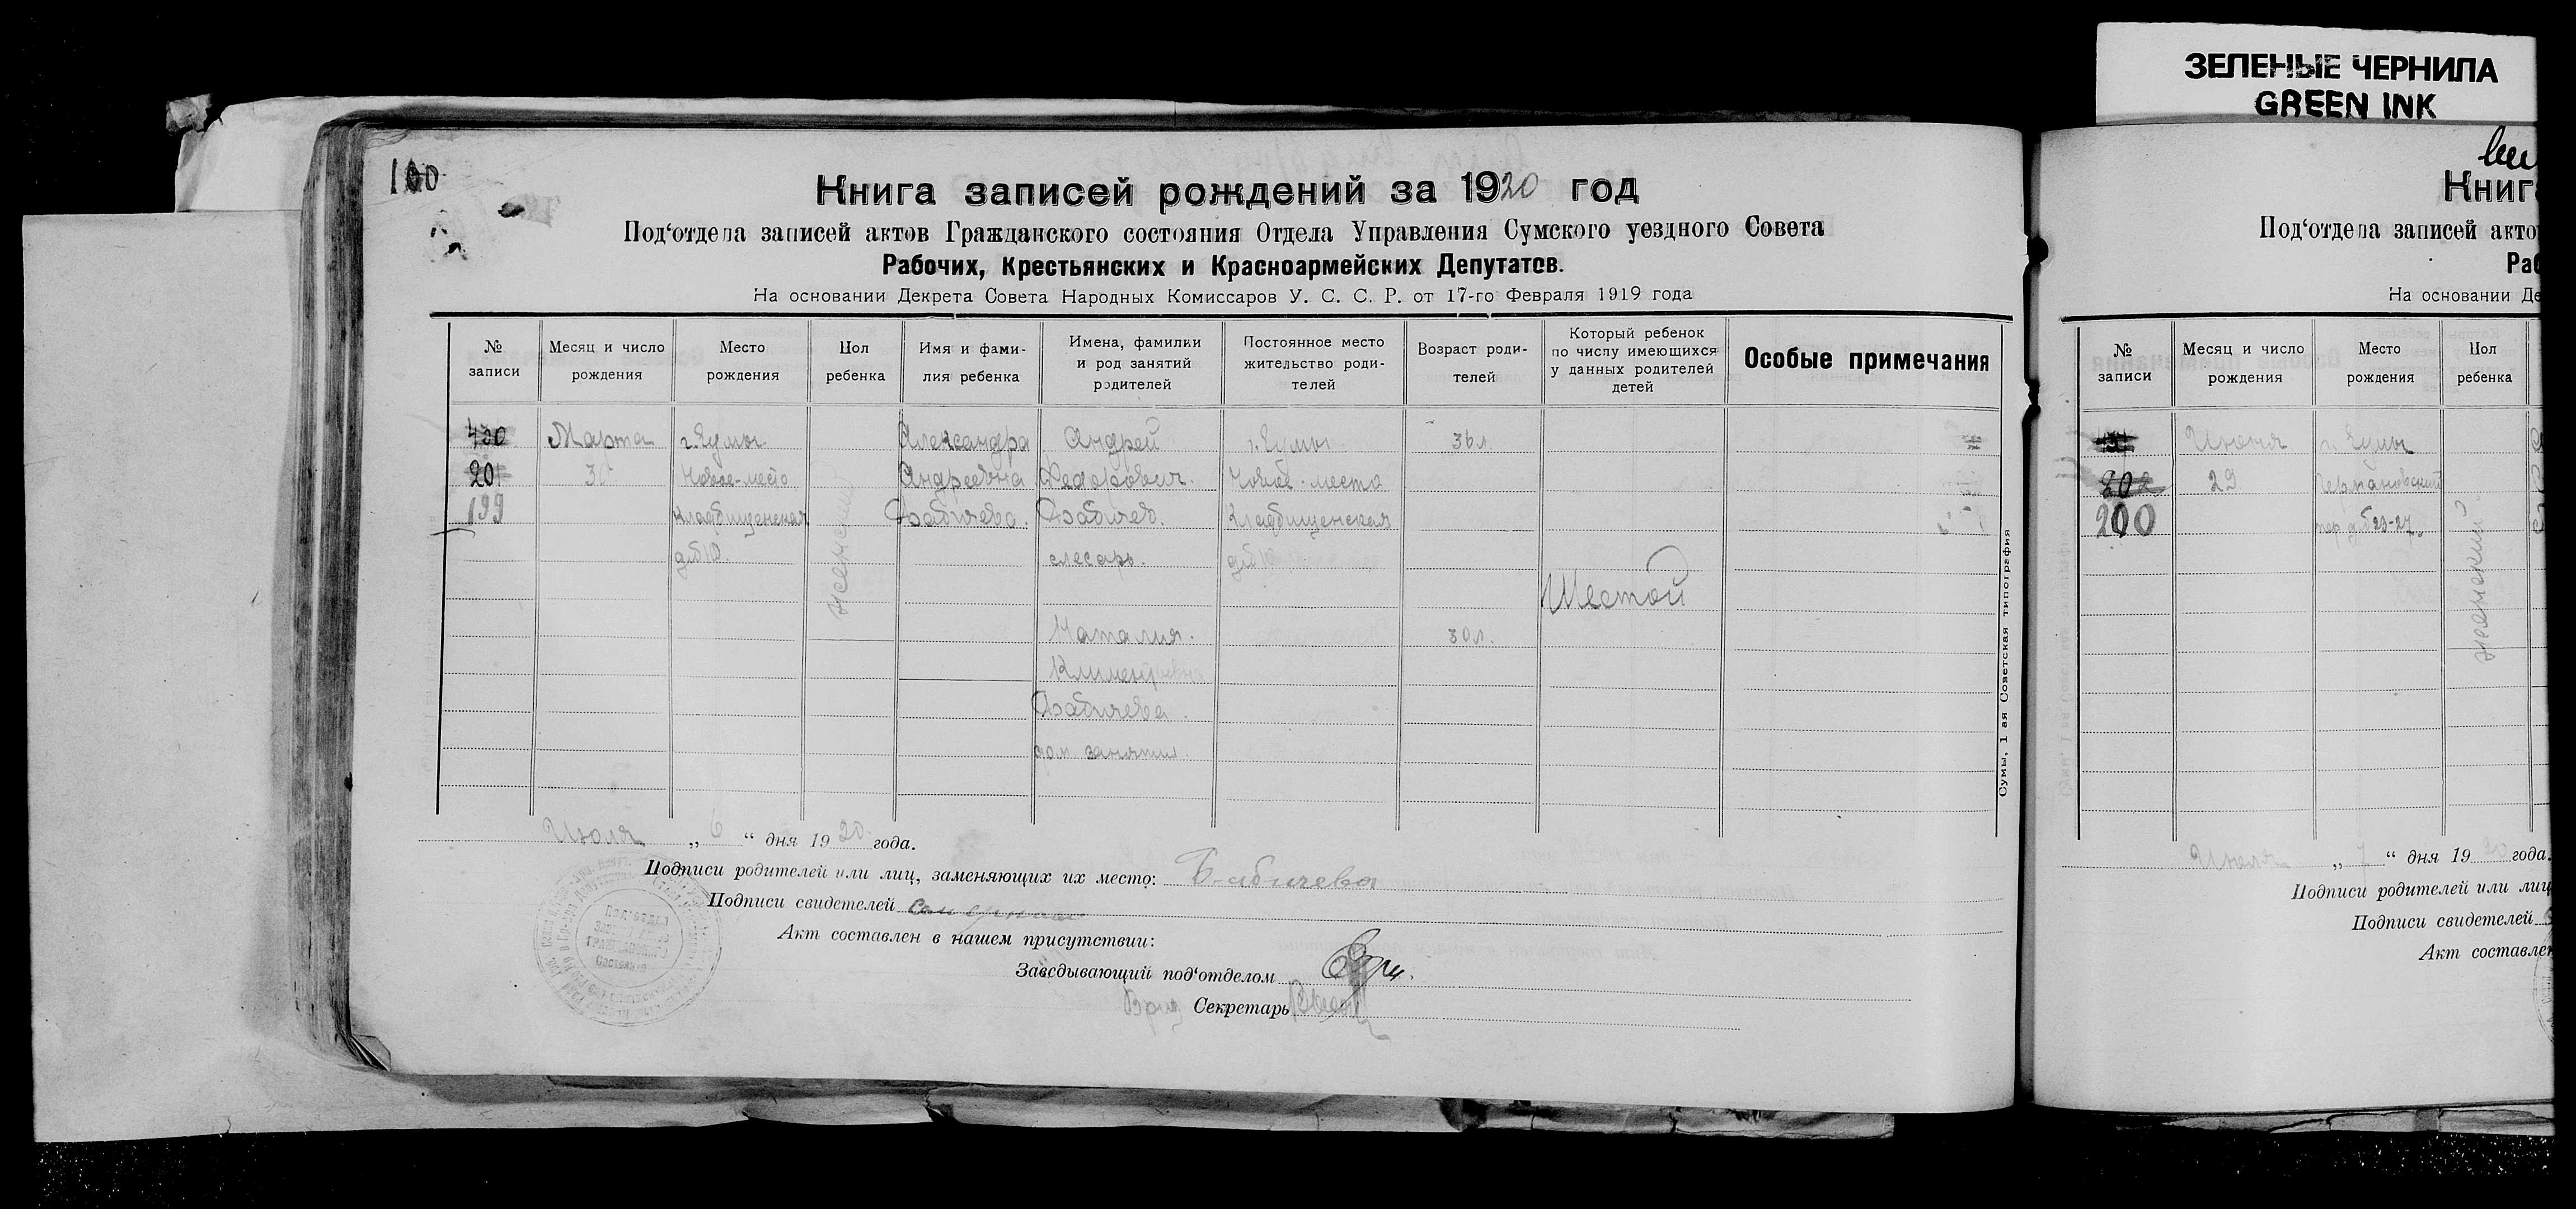 ЗЕЛЕНЫЕ ЧЕРНИЛА
GREEN INK
100
Книга записей рождений за 1920 год
Под‘отдела записей актов Гражданского состояния Отдела Управления Сумского уездного Совета
Рабочих, Крестьянских и Красноармейских Депутатов.
На основании Декрета Совета Народных Комиссаров У. С. С. Р. от 17-го Февраля 1919 года
№ записи
Месяц и число рождения
Место рождения
Пол ребенка
Имя и фамилия ребенка
Имена, фамилии и род занятий родителей
Постоянное место жительство родителей
Возраст родителей
Который ребенок по числу имеющихся у данных родителей детей
Особые примечания
199
Марта
30
г. Сумы
Новое-место
Кладбищенская
д. № 10.
женский
Александра
Андреевна
Бабичева.
Андрей
Федорович.
Бабичев.
слесарь.
Наталия.
Климентьевна
Бабичева.
дом. занятия.
г. Сумы
Новое-место
Кладбищенская
д. № 10
36 л.
30 л.
Шестой
Сумы, 1 ая Советская типография
Июля „ 6 “ дня 1920 года.
Подписи родителей или лиц, заменяющих их место: Бабичева
Подписи свидетелей
Акт составлен в нашем присутствии:
Заведывающий под‘отделом
Врид Секретарь
Книга
Под‘отдела записей акто
Раб
На основании Де
№ записи
Месяц и число рождения
Место рождения
Пол ребенка
202
200
Июня
29
г. Сумы
пер. д. № 23-27.
женский
Июля „ 7 “ дня 1920 года.
Подписи родителей или лиц
Подписи свидетелей
Акт составлен